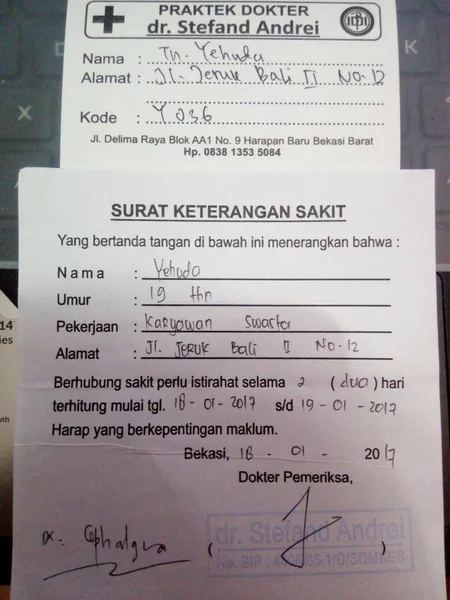 PRAKTEK DOKTER
dr. Stefand Andrei
Nama : Tn. Yehuda
Alamat : Jl. Jeruk Bali II No. 12
Kode : Y 036
Jl. Delima Raya Blok AA1 No. 9 Harapan Baru Bekasi Barat
Hp. 0838 1353 5084
SURAT KETERANGAN SAKIT
Yang bertanda tangan di bawah ini menerangkan bahwa :
Nama : Yehuda
Umur : 19 thn
Pekerjaan : Karyawan Swasta
Alamat : Jl. JERUK Bali II No. 12
Berhubung sakit perlu istirahat selama 2 (dua) hari
terhitung mulai tgl. 18-01-2017 s/d 19-01-2017
Harap yang berkepentingan maklum.
Bekasi, 18 - 01 - 2017
Dokter Pemeriksa,
dr. Stefand Andrei
Dx. Cephalgia ( )
No. SIP :
14
ies